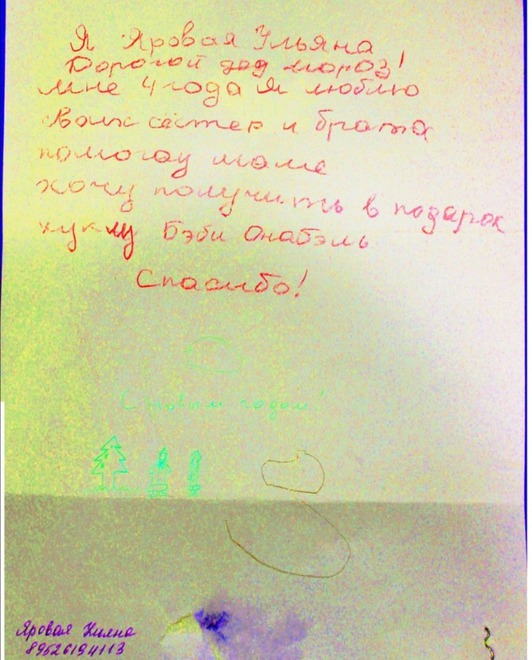 Я Яровая Ульяна
Дорогой дед мороз!
Мне 4 года Я люблю
Своих сёстер и брата
помогау маме
хочу получить в подарок
куклу Бэби Анабэль
Спасибо!
С новым годом!
Яровая Уляна
89526194113